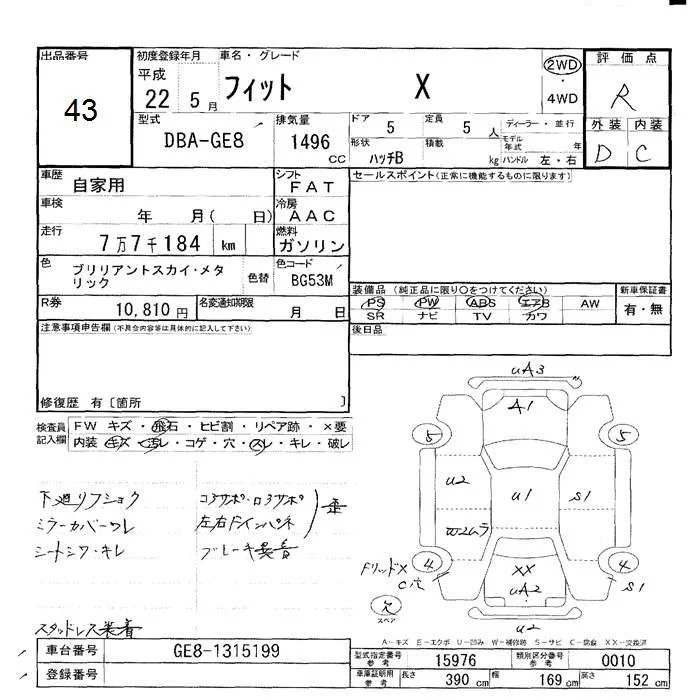 出品番号
43
初度登録年月
平成
22 5 月
車名・グレード
フィット X
2WD
・
4WD
評価点
R
外装 内装
D C
型式
DBA-GE8
排気量
1496
CC
ドア 5 定員 5 人
ディーラー・並行
モデル年式 年
形状 ハッチB 積載 kg ハンドル 左・右
車歴
自家用
シフト
FAT
セールスポイント(正常に機能するものに限ります)
車検
年 月( 日)
冷房
AAC
走行
7万7千184 km
燃料
ガソリン
色
ブリリアントスカイ・メタリック
色替
色コード
BG53M
装備品 (純正品に限り〇をつけてください)
PS PW ABS エアB AW
SR ナビ TV カワ
新車保証書
有・無
R券
10,810 円
名変通知期限
月 日
後日品
注意事項申告欄(不具合内容等は具体的に記入して下さい)
修復歴 有〔箇所 〕
検査員
記入欄
FW キズ・飛石・ヒビ割・リペア跡・×要
内装・キズ・汚レ・コゲ・穴・スレ・キレ・破レ
下廻リフショク
ミラーカバーワレ
シートシワ・キレ
コアサポ・ロアサポ
左右ドインパネ
歪
スタッドレス装着
uA3
A1
5 5
u2 u1 S1
W2ムラ
FリッドX
C穴
4 4
XX
uA2
S1
欠
スペア
u2
A-キズ E-エクボ U-凹み W-補修跡 S-サビ C-腐食 XX-交換済
車台番号
GE8-1315199
登録番号
型式指定番号
参考
15976
類別区分番号
参考
0010
車庫証明用
参考
長さ 390 cm 幅 169 cm 高さ 152 cm